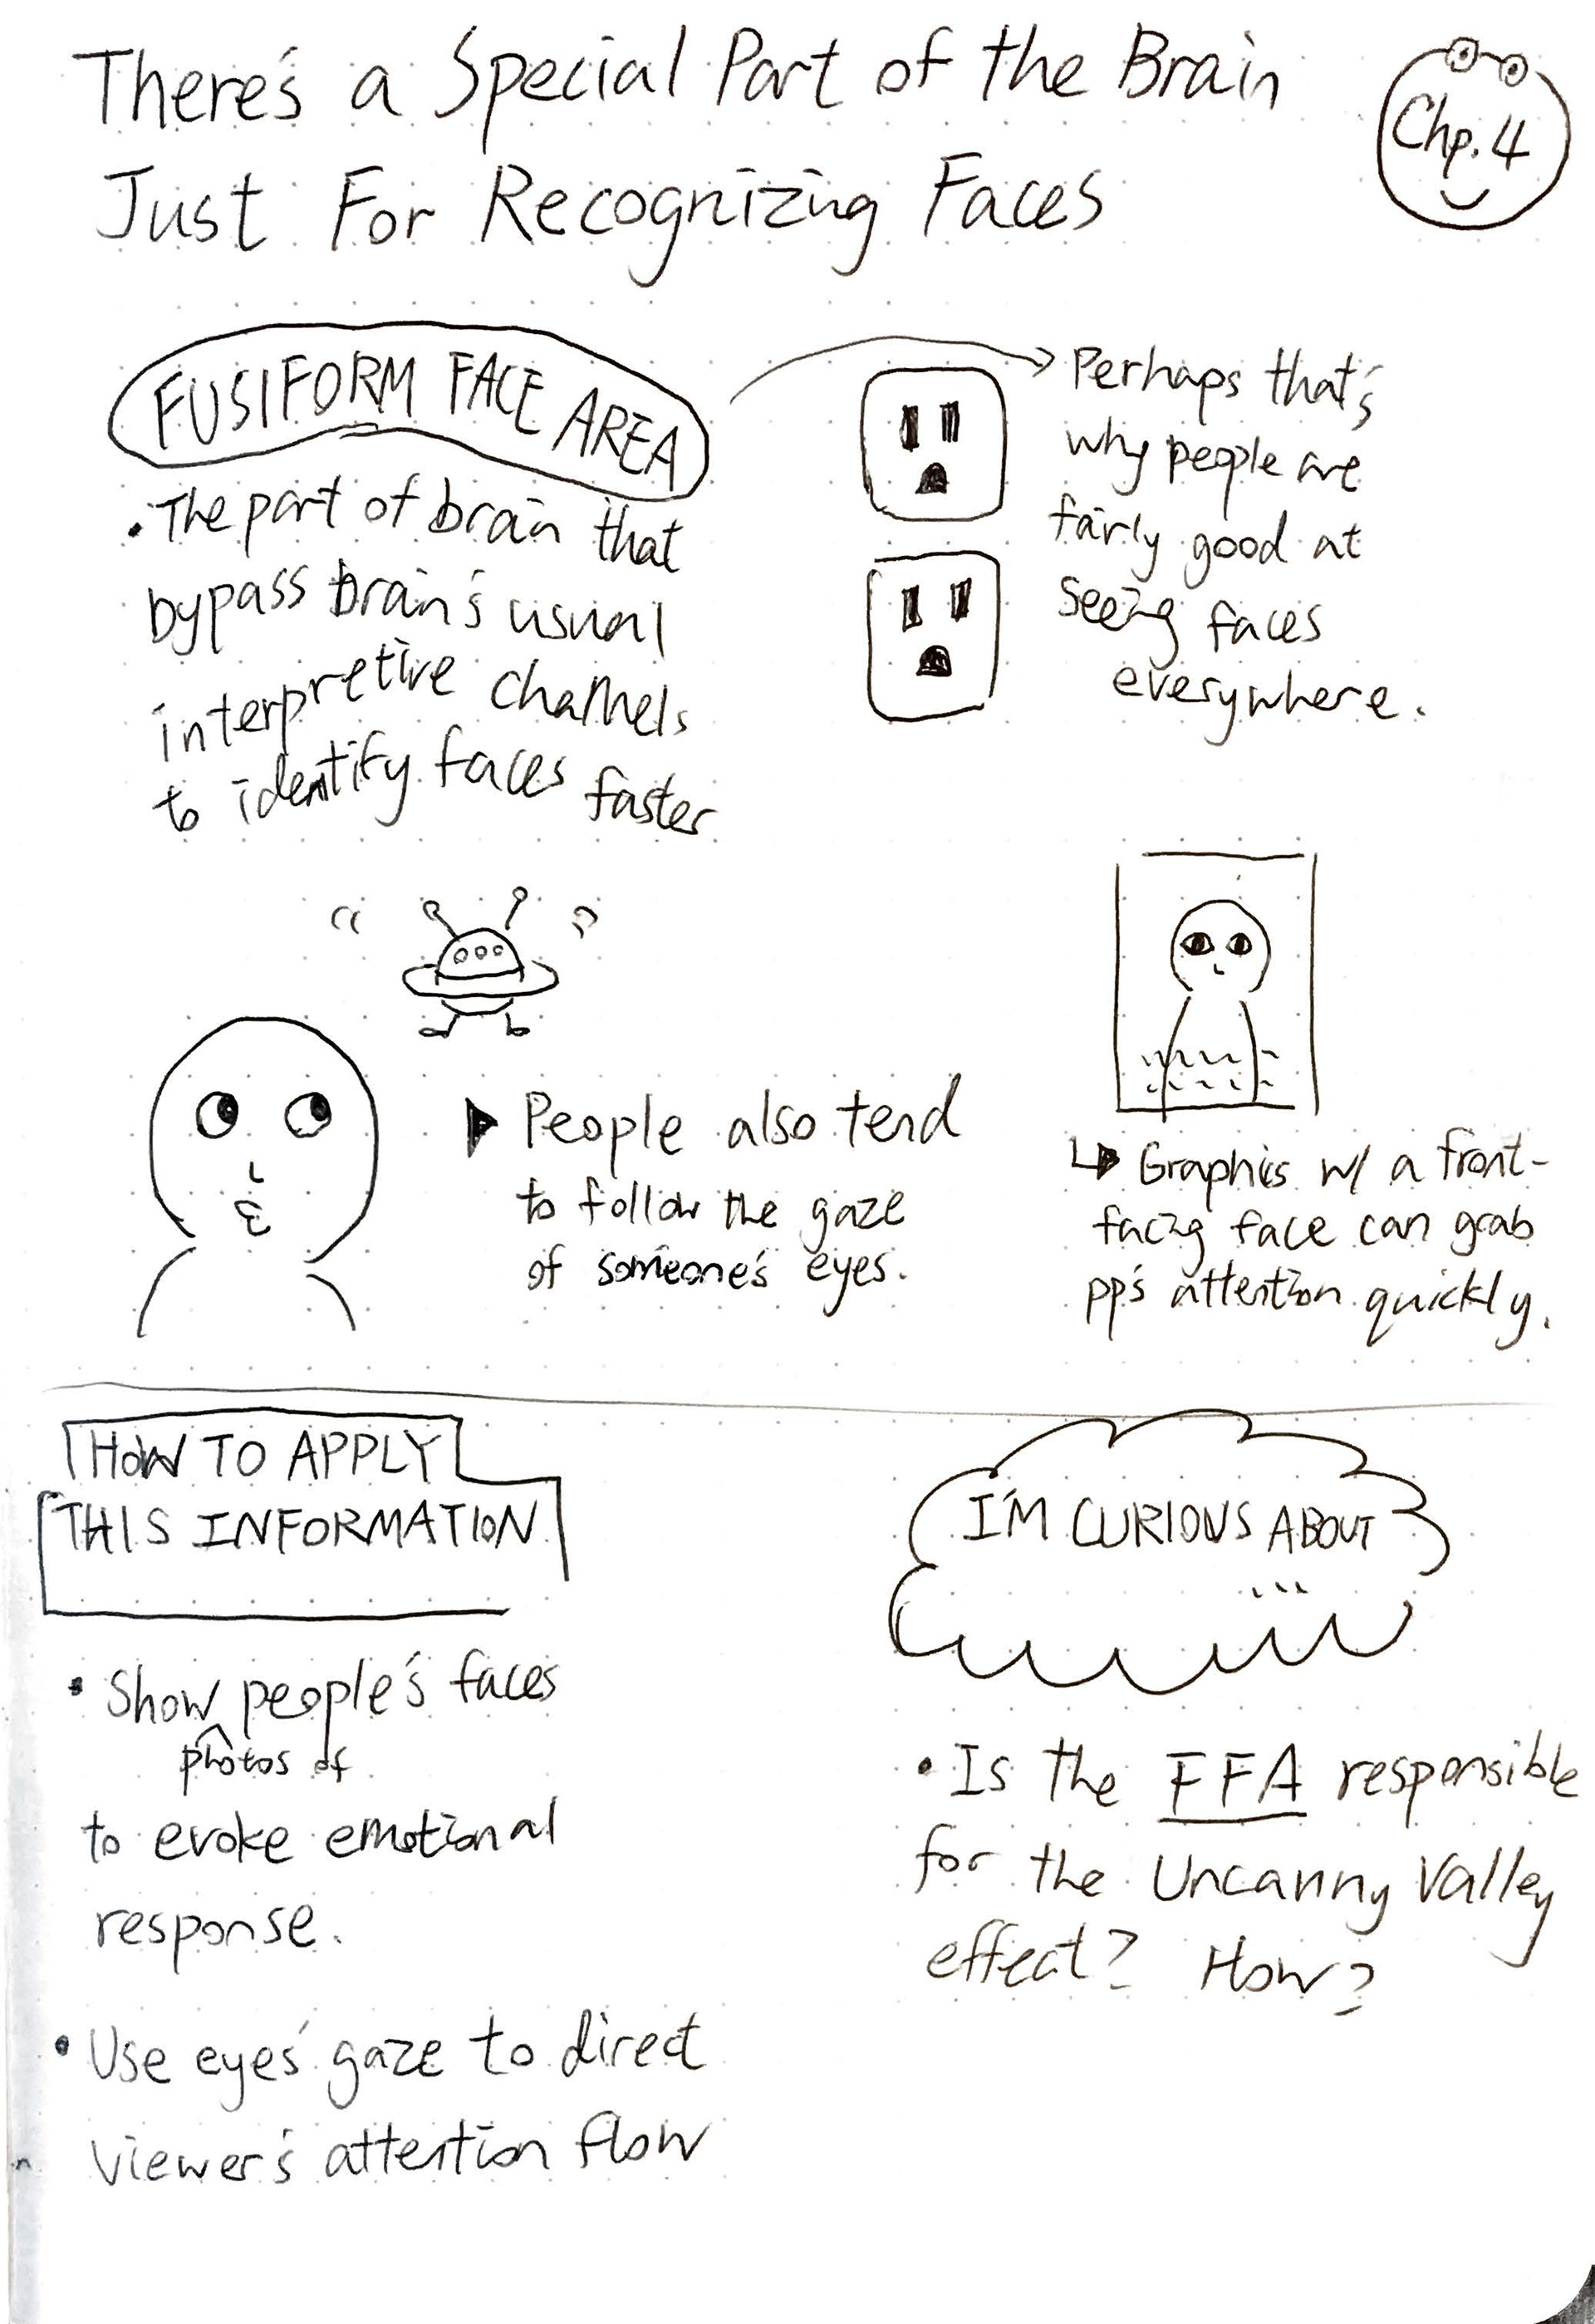 There's a Special Part of the Brain
Just For Recognizing Faces
Chp. 4
FUSIFORM FACE AREA
• The part of brain that
bypass brain's usual
interpretive channels
to identify faces faster
Perhaps that's
why people are
fairly good at
seeing faces
everywhere.
People also tend
to follow the gaze
of someone's eyes.
Graphics w/ a front-
facing face can grab
pp's attention quickly.
HOW TO APPLY
THIS INFORMATION
• Show people's faces
photos of
to evoke emotional
response.
• Use eyes' gaze to direct
viewer's attention flow
I'M CURIOUS ABOUT
...
• Is the FFA responsible
for the Uncanny Valley
effect? How?